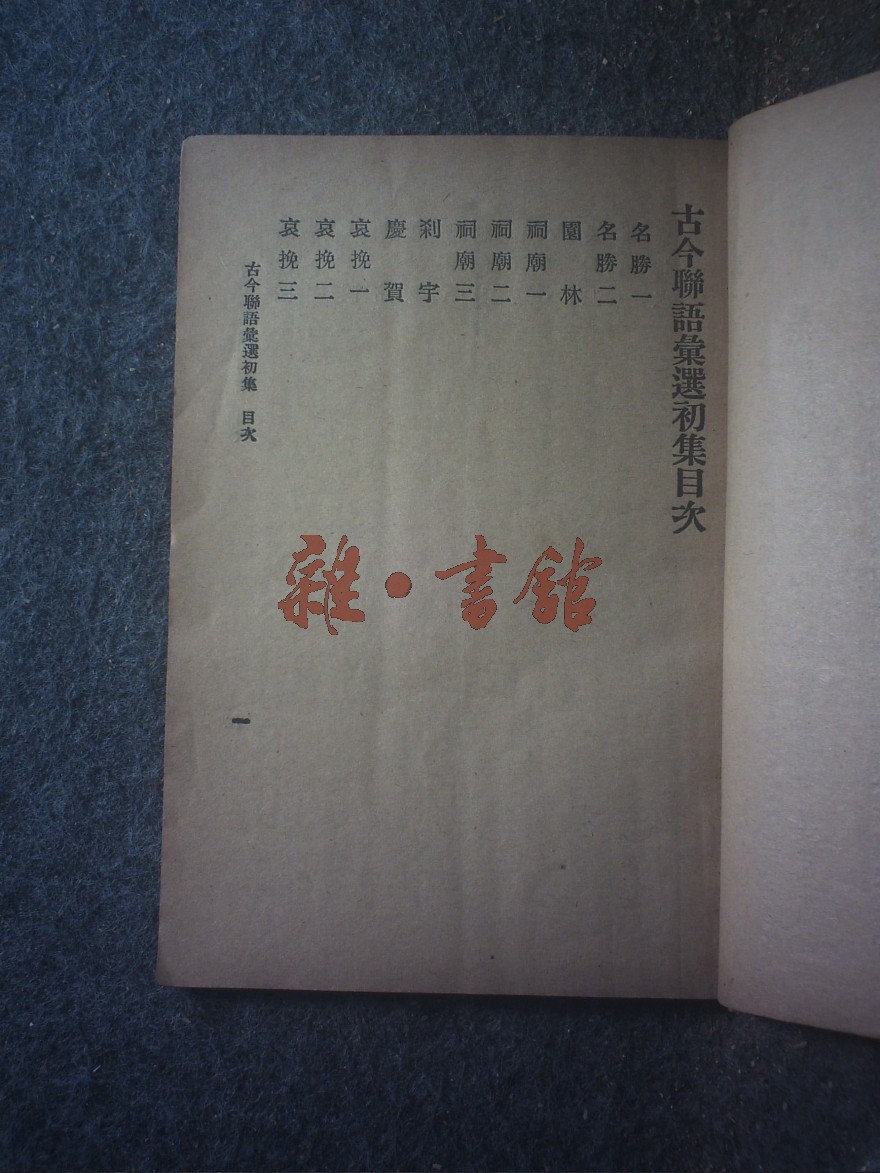 古今聯語彙選初集目次
名勝一
名勝二
園林
祠廟一
祠廟二
祠廟三
剎宇
慶賀
哀挽一
哀挽二
哀挽三
古今聯語彙選初集 目次
一
雜·書館